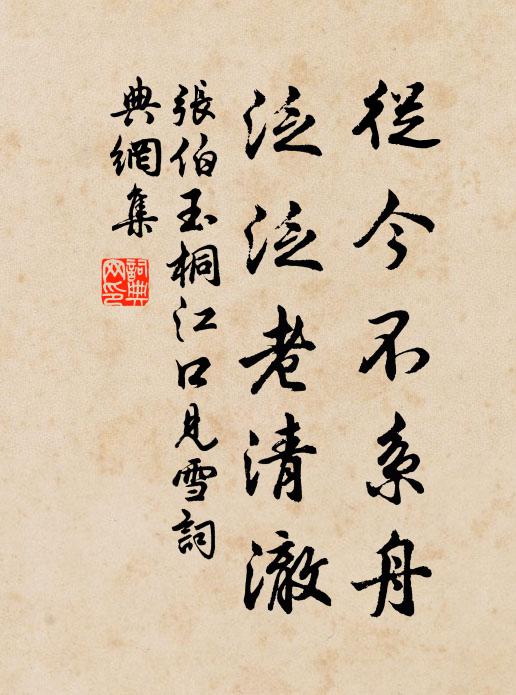 從今不系舟
泛泛老清澈
張伯玉桐江口見雪詞
典網集
詞典
网印